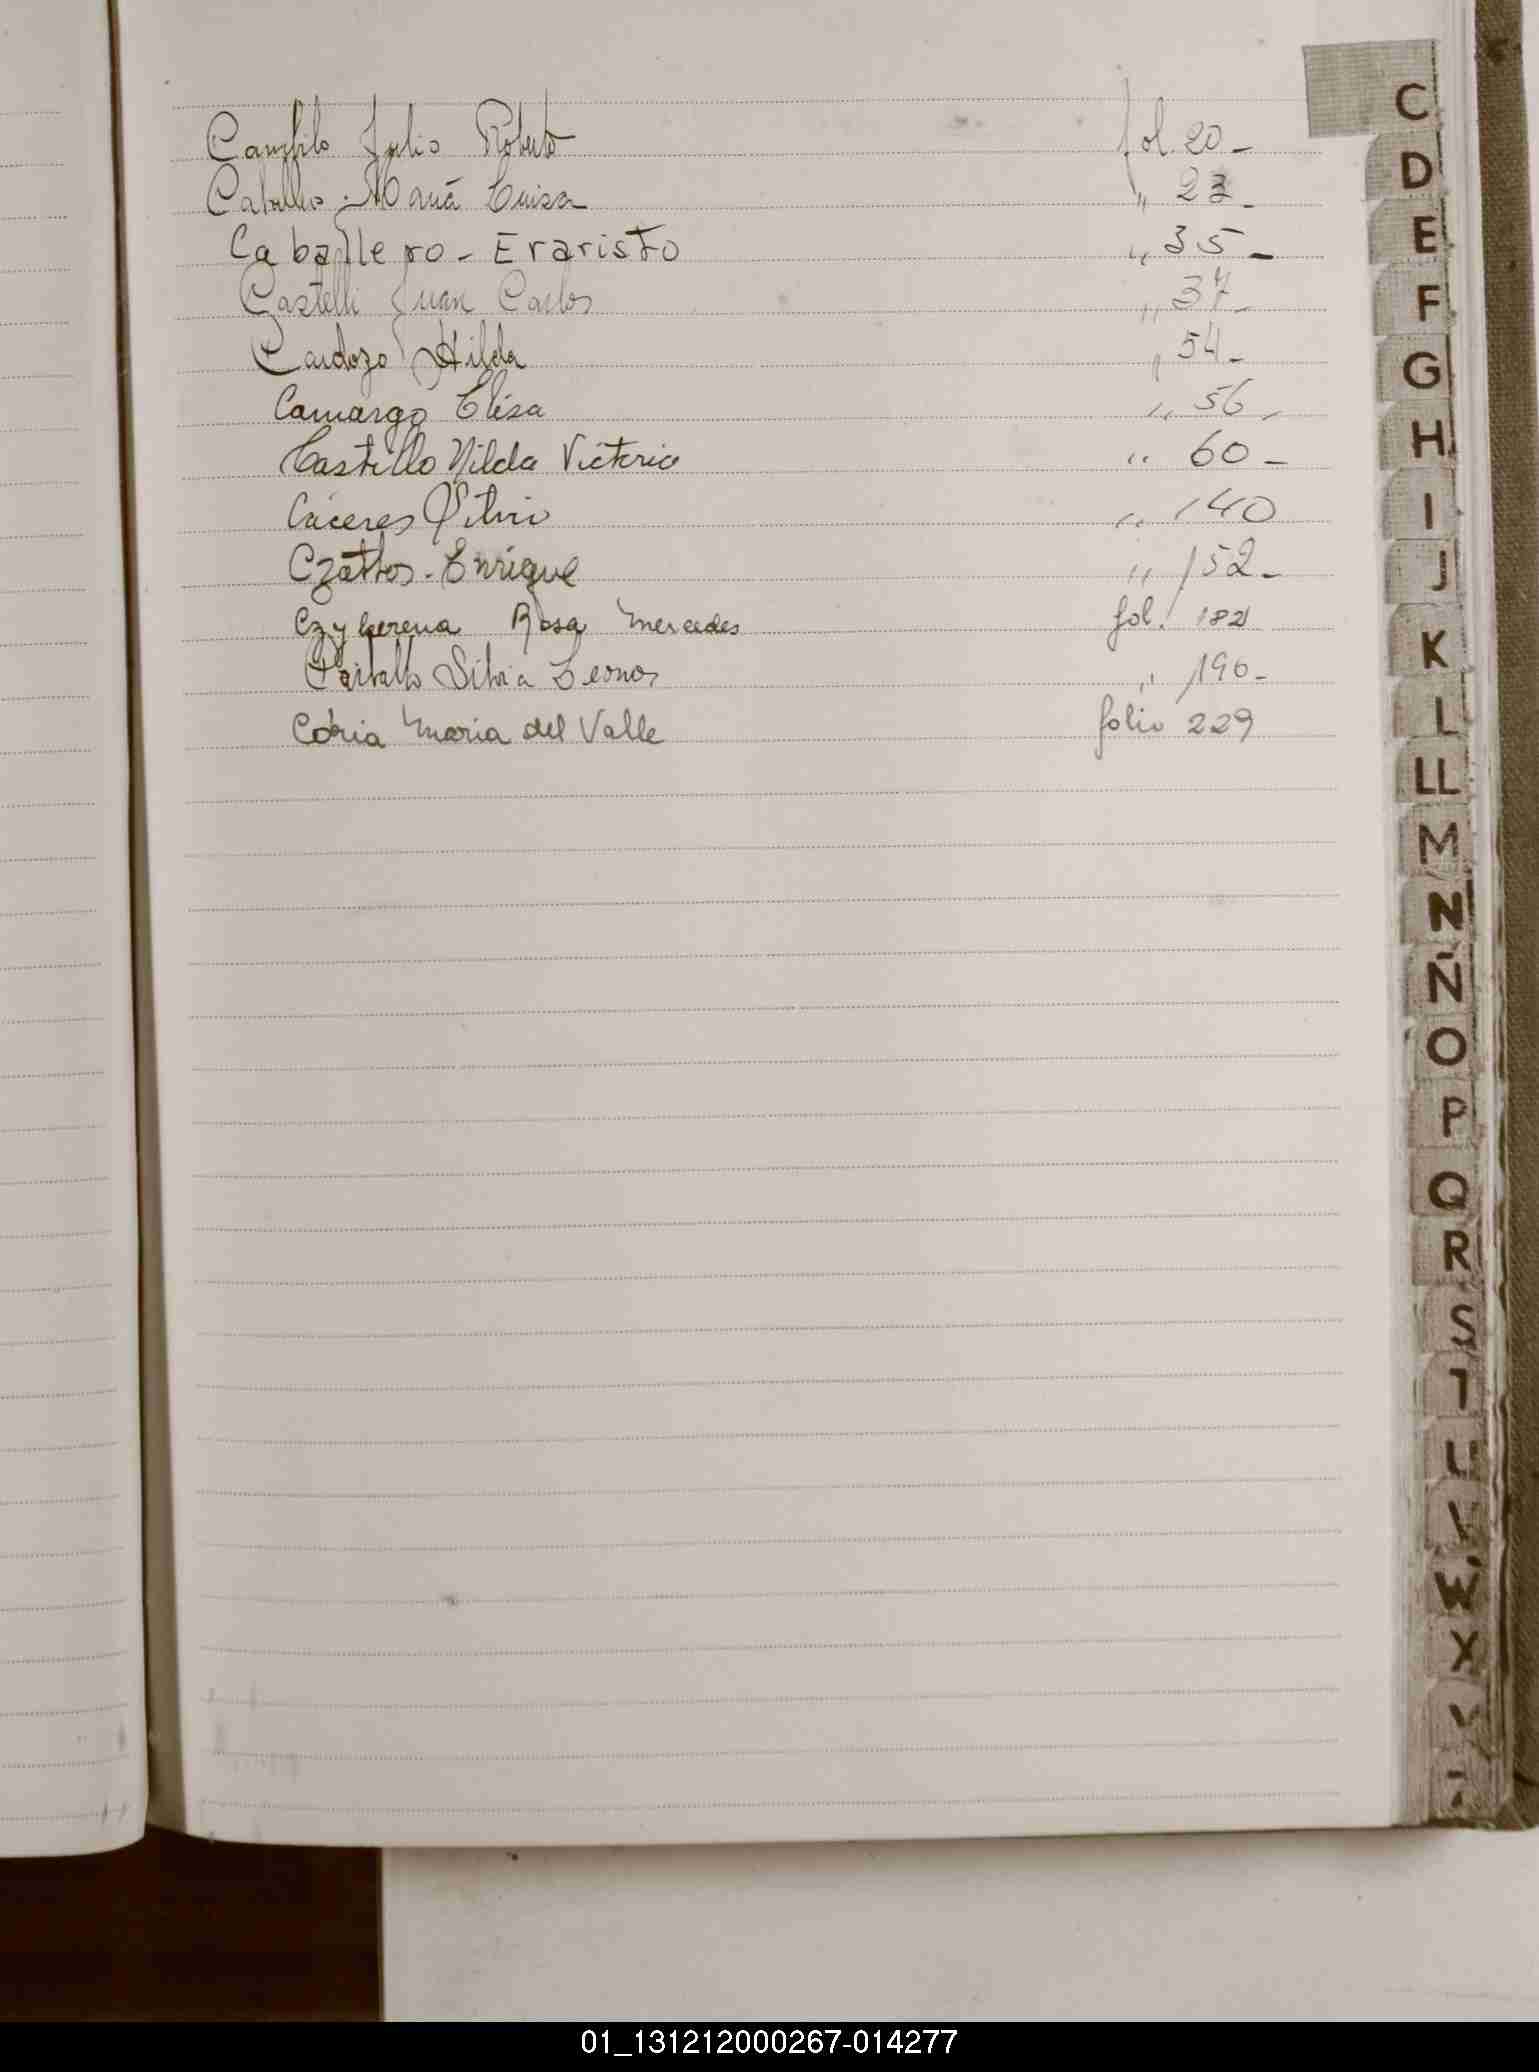 Julio Roberto fol. 20 -
María Luisa " 23 -
Caballero - Eraristo " 35 -
Castelli Juan Carlos " 37 -
Cardozo Hilda " 54 -
Camargo Elisa " 56 -
Castillo Nilda Victoria " 60 -
Cáceres " 140
Enrique " 152 -
Rosa Mercedes fol. 182
Silvia Leonor " 190 -
Coria Maria del Valle folio 229
C
D
E
F
G
H
I
J
K
L
LL
M
N
Ñ
O
P
Q
R
S
T
U
V
W
X
01_131212000267-014277